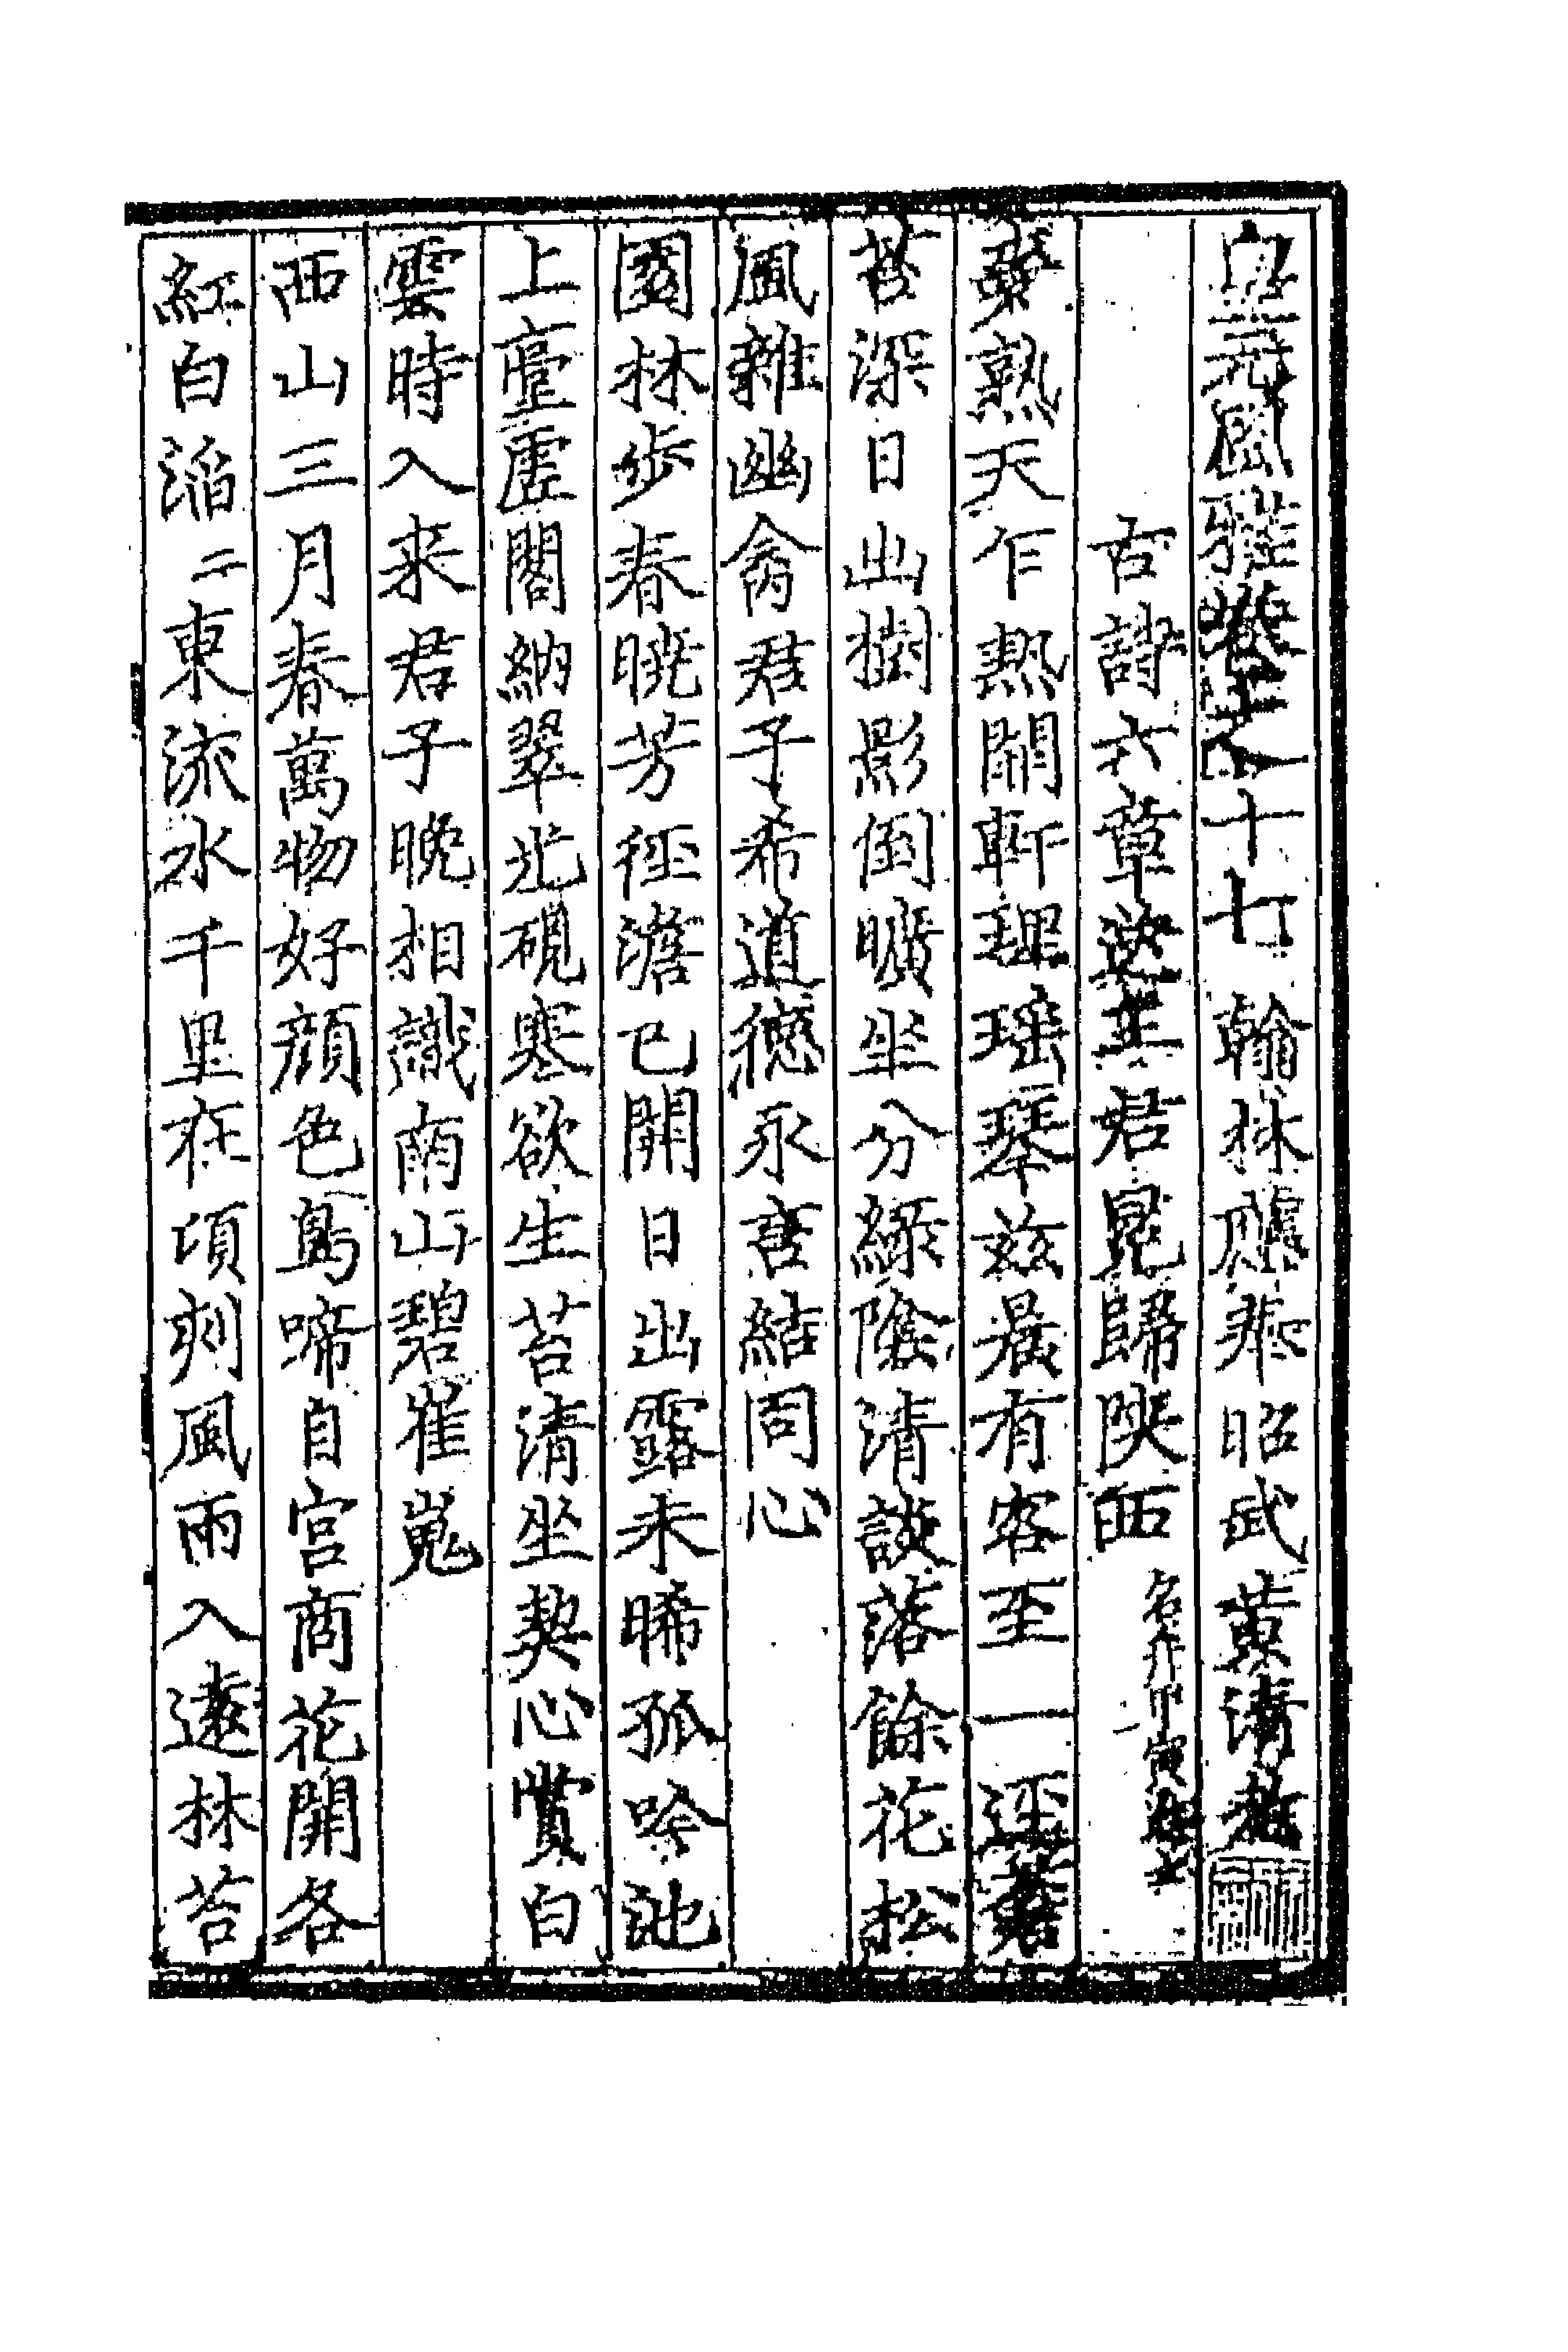 皇元風雅卷之十七 翰林應奉昭武黄清老
古詩六章送王君冕歸陜西
麥熟天乍熱開軒理瑶琴兹晨有客至一逕蒼
苔深日出樹影倒曠坐分緑隂清談落餘花松
風雜幽禽君子希道德永言結同心
園林歩春晩芳徑澹已開日出露未晞孤吟池
上臺虚閣納翠光硯寒欲生苔清坐契心賞白
雲時入来君子晩相識南山碧崔嵬
西山三月春萬物好顔色鳥啼自宫商花開各
紅白滔二東流水千里在頃刻風雨入遠林苔